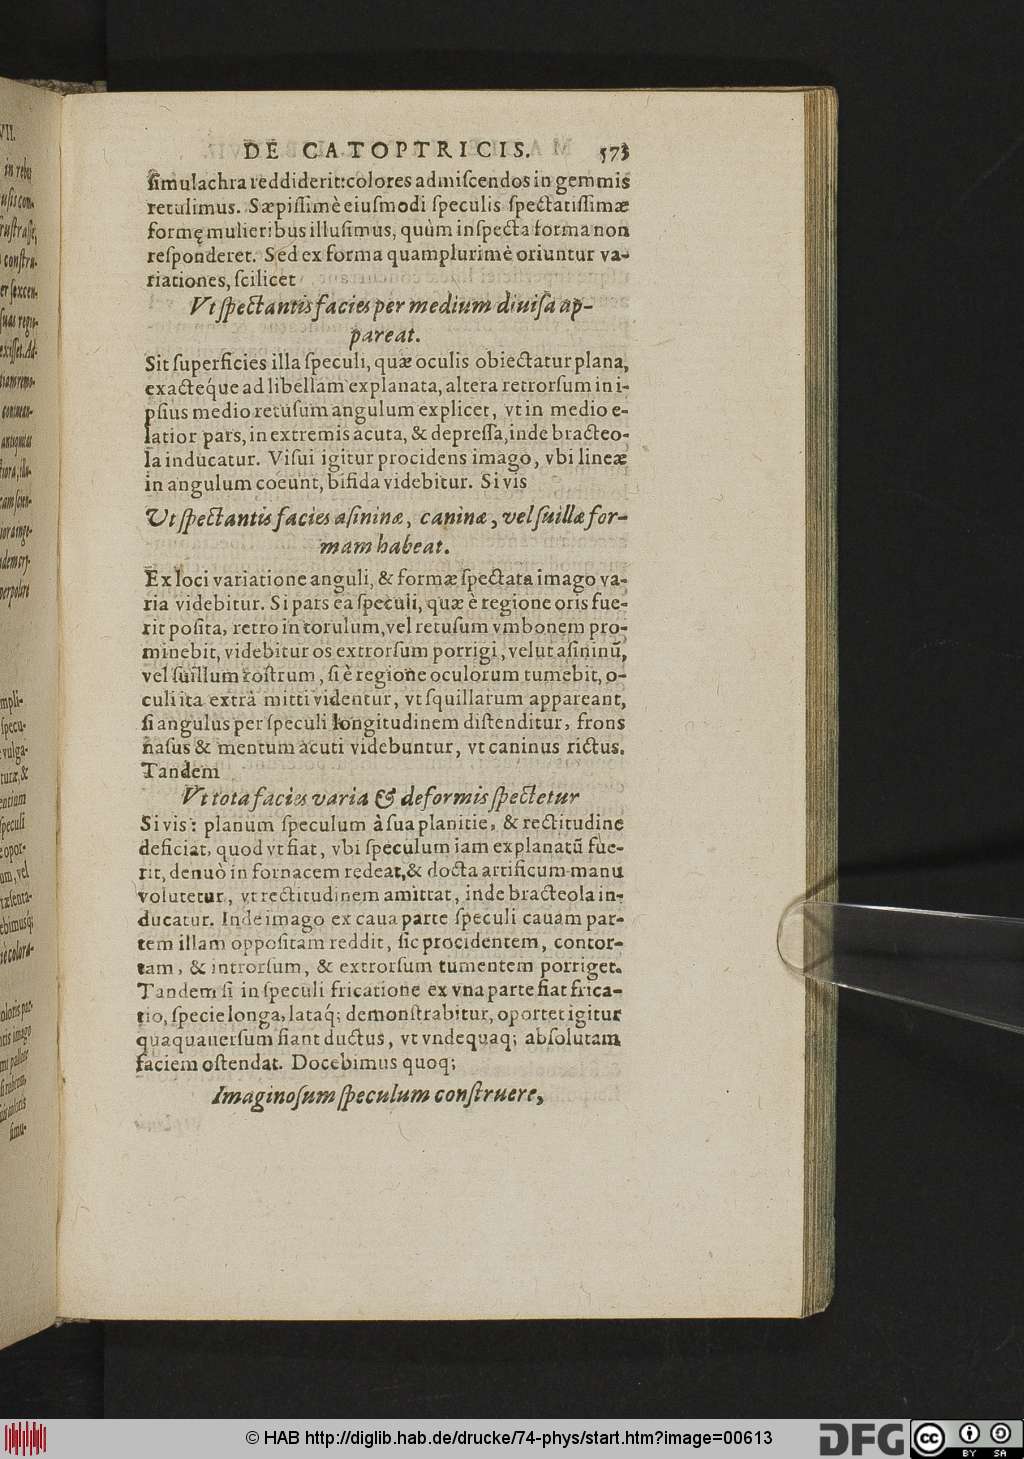 DE CATOPTRICIS. 573
simulachra reddiderit: colores admiscendos in gemmis
retulimus. Sæpissimè eiusmodi speculis spectatissimæ
formę mulieribus illusimus, quùm inspecta forma non
responderet. Sed ex forma quamplurimè oriuntur va-
riationes, scilicet
Vt spectantis facies per medium diuisa ap-
pareat.
Sit superficies illa speculi, quæ oculis obiectatur plana,
exactéque ad libellam explanata, altera retrorsum in i-
psius medio retusum angulum explicet, vt in medio e-
latior pars, in extremis acuta, & depressa, inde bracteo-
la inducatur. Visui igitur procidens imago, vbi lineæ
in angulum coeunt, bifida videbitur. Si vis
Vt spectantis facies asininæ, caninæ, vel suillæ for-
mam habeat.
Ex loci variatione anguli, & formæ spectata imago va-
ria videbitur. Si pars ea speculi, quæ è regione oris fue-
rit posita, retro in torulum, vel retusum vmbonem pro-
minebit, videbitur os extrorsum porrigi, velut asininũ,
vel suillum rostrum, si è regione oculorum tumebit, o-
culi ita extrà mitti videntur, vt squillarum appareant,
si angulus per speculi longitudinem distenditur, frons
nasus & mentum acuti videbuntur, vt caninus rictus.
Tandem
Vt tota facies varia & deformis spectetur
Si vis: planum speculum à sua planitie, & rectitudine
deficiat, quod vt fiat, vbi speculum iam explanatũ fue-
rit, denuò in fornacem redeat, & docta artificum manu
volutetur, vt rectitudinem amittat, inde bracteola in-
ducatur. Inde imago ex caua parte speculi cauam par-
tem illam oppositam reddit, sic procidentem, contor-
tam, & introrsum, & extrorsum tumentem porriget.
Tandem si in speculi fricatione ex vna parte fiat frica-
tio, specie longa, lataq́; demonstrabitur, oportet igitur
quaquauersum fiant ductus, vt vndequaq; absolutam
faciem ostendat. Docebimus quoq;
Imaginosum speculum construere,
© HAB http://diglib.hab.de/drucke/74-phys/start.htm?image=00613
DFG
cc BY SA